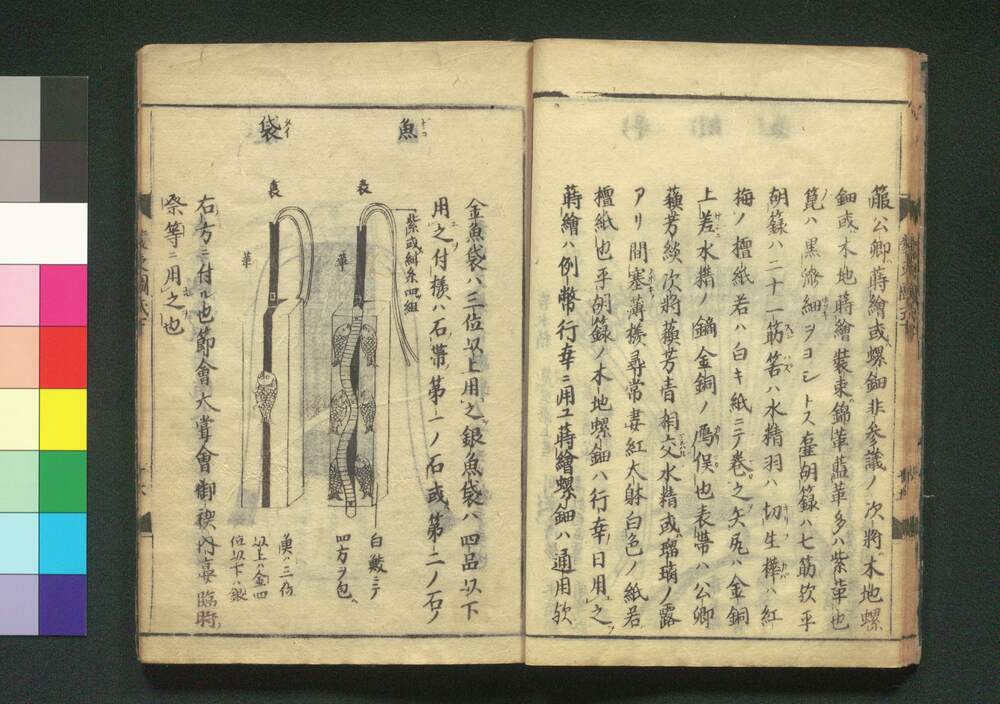 箙公卿蒔繪或螺鈿非參議ノ次將木地螺
鈿或木地蒔繪裝束錦革藍革多ハ紫革也
箟ハ黒漆細ヲヨシトス壷胡籙ハ七筋欤平
胡籙ハ二十一筋筈ハ水精羽ハ切生樺ハ紅
梅ノ檀紙若ハ白キ紙ニテ卷之矢尻ハ金銅
上差水精ノ鏑金銅ノ鴈俣也表帶ハ公卿
蘓芳緂次將蘓芳青相交水精或瑠璃ノ露
アリ間塞薄樣尋常妻紅大躰白色ノ紙若
檀紙也平胡籙ノ木地螺鈿ハ行幸日用之
蒔繪ハ例幣行幸ニ用エ蒔繪螺鈿ハ通用欤
魚袋
金魚袋ハ三位以上用之銀魚袋ハ四品以下
用之付樣ハ石帶第一ノ石或第二ノ石ノ
紫或紺糸四組
表
革
白鮫ニテ
四方ヲ包
裏
革
魚ハ三位
以上ハ金四
位以下ハ銀
右方ニ付ル也節會大甞會御禊内宴臨時
祭等ニ用之也